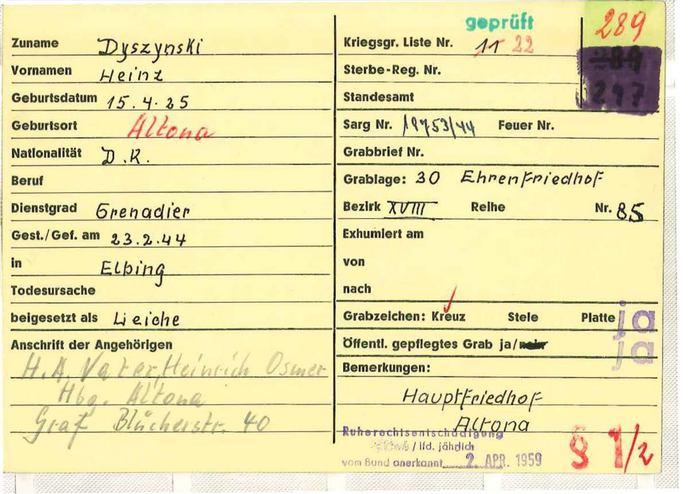 Zuname Dyszynski
Vornamen Heinz
Geburtsdatum 15.4.25
Geburtsort Altona
Nationalität D.R.
Beruf
Dienstgrad Grenadier
Gest./Gef. am 23.2.44
in Elbing
Todesursache
beigesetzt als Leiche
Anschrift der Angehörigen
H.A. Vater, Heinrich Osmer
Hbg. Altona
Graf Blücherstr. 40
geprüft
289
297
Kriegsgr. Liste Nr. 11 22
Sterbe-Reg. Nr.
Standesamt
Sarg Nr. 19753/44 Feuer Nr.
Grabbrief Nr.
Grablage: 30 Ehrenfriedhof
Bezirk XVIII Reihe Nr. 85
Exhumiert am
von
nach
Grabzeichen: Kreuz Stele Platte ja
Öffentl. gepflegtes Grab ja/nein ja
Bemerkungen:
Hauptfriedhof
Altona
Ruherechtsentschädigung
/ lfd. jährlich
vom Bund anerkannt 2. APR. 1959
§ 1/2